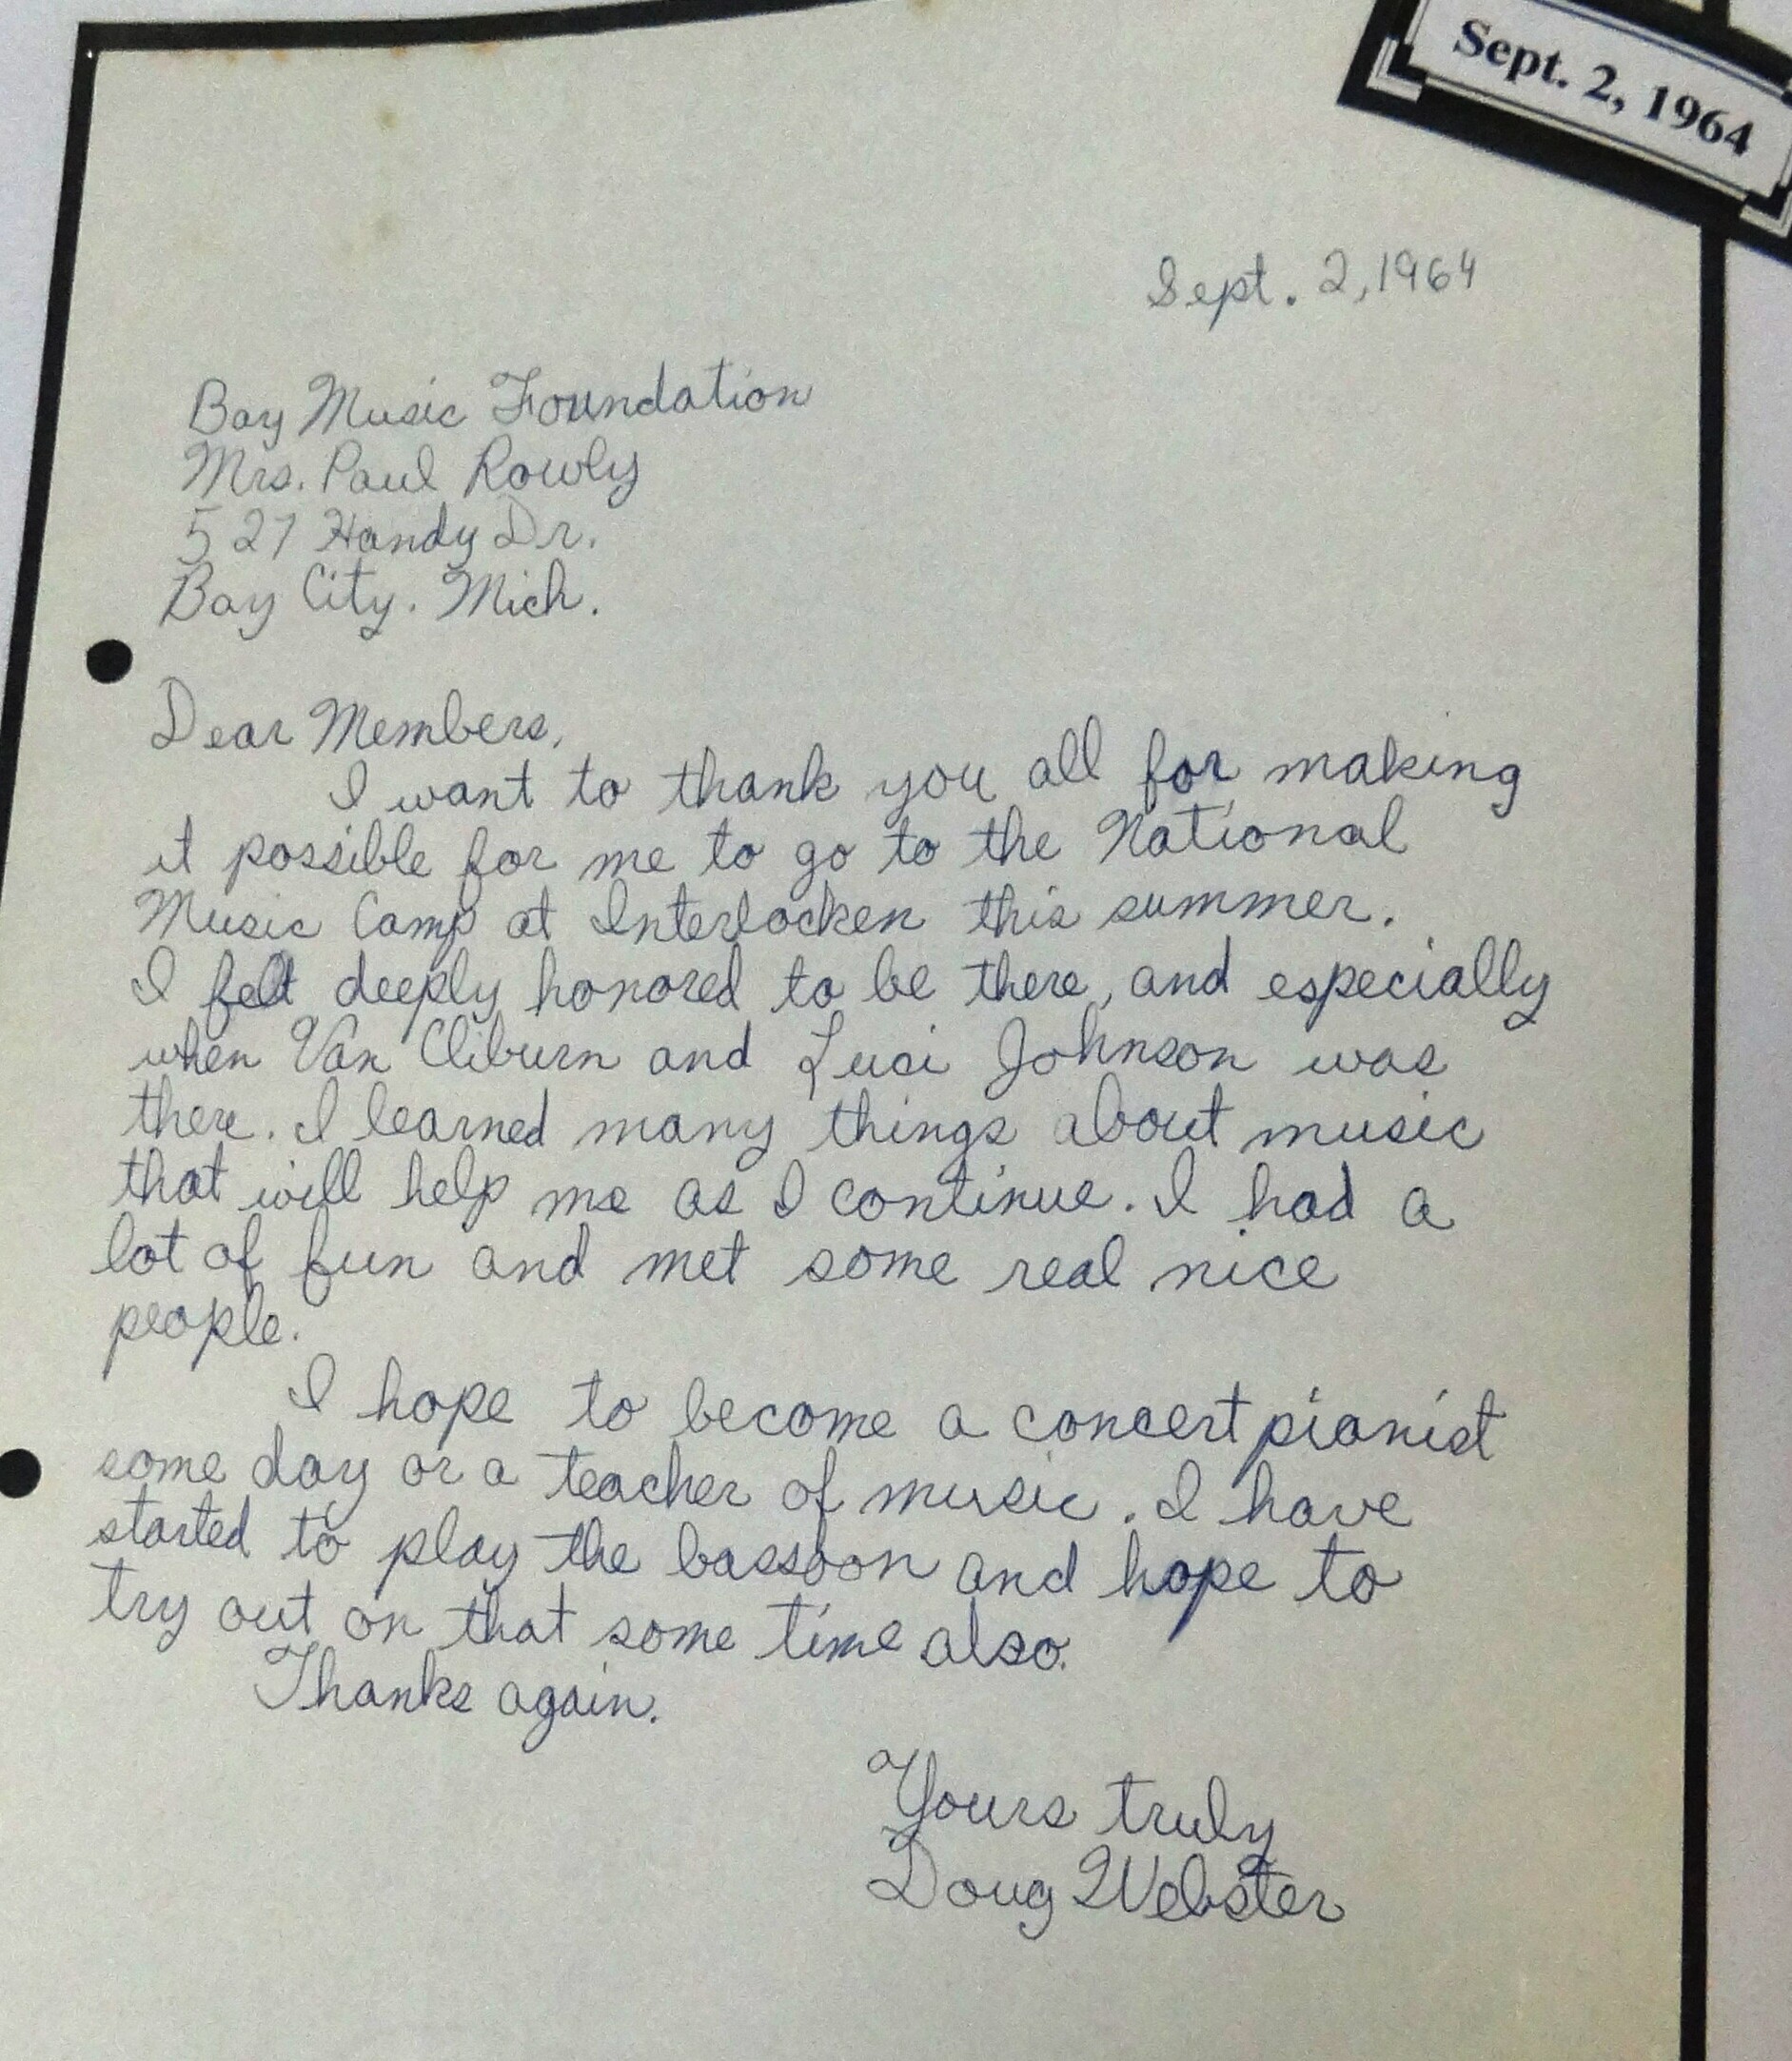 Sept. 2, 1964
Sept. 2, 1964
Bay Music Foundation
Mrs. Paul Rowly
527 Handy Dr.
Bay City. Mich.
Dear Members,
I want to thank you all for making
it possible for me to go to the National
Music Camp at Interlocken this summer.
I felt deeply honored to be there, and especially
when Van Cliburn and Luci Johnson was
there. I learned many things about music
that will help me as I continue. I had a
lot of fun and met some real nice
people.
I hope to become a concert pianist
some day or a teacher of music. I have
started to play the bassoon and hope to
try out on that some time also.
Thanks again.
Yours truly
Doug Webster